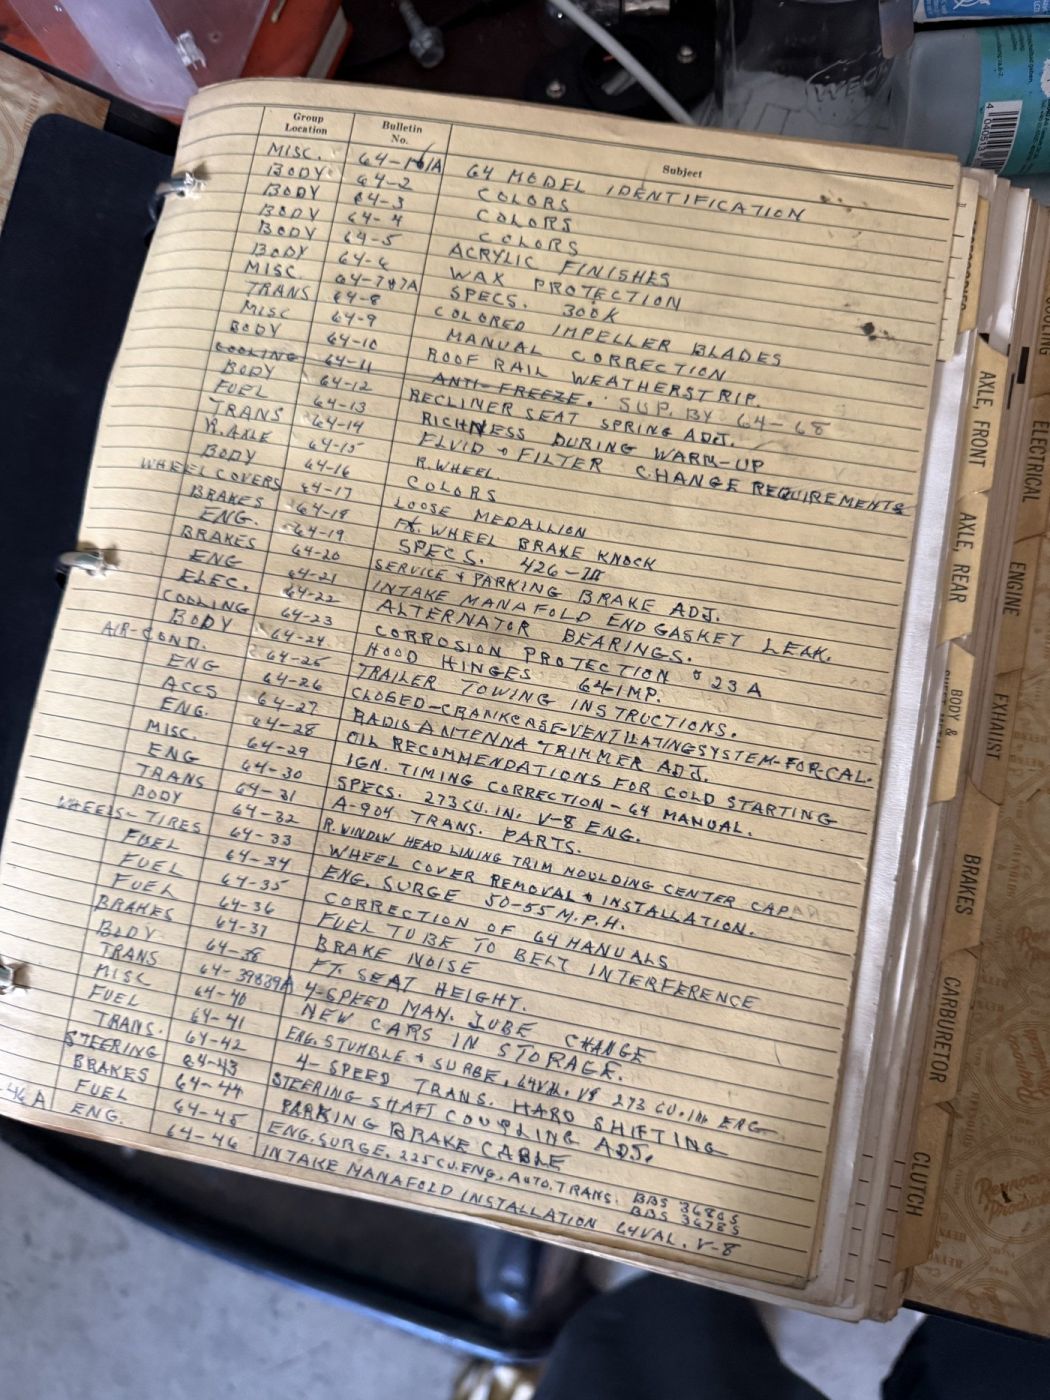 Group Location Bulletin No. Subject
MISC. 64-1&1A 64 MODEL IDENTIFICATION
BODY 64-2 COLORS
BODY 64-3 COLORS
BODY 64-4 COLORS
BODY 64-5 ACRYLIC FINISHES
BODY 64-6 WAX PROTECTION
MISC 64-7&7A SPECS. 300K
TRANS 64-8 COLORED IMPELLER BLADES
MISC 64-9 MANUAL CORRECTION
BODY 64-10 ROOF RAIL WEATHERSTRIP.
COOLING 64-11 ANTI-FREEZE. SUP. BY 64-68
BODY 64-12 RECLINER SEAT SPRING ADJ.
FUEL 64-13 RICHNESS DURING WARM-UP
TRANS 64-14 FLUID + FILTER CHANGE REQUIREMENTS
R.AXLE 64-15 R.WHEEL.
BODY 64-16 COLORS
WHEEL COVERS 64-17 LOOSE MEDALLION
BRAKES 64-18 Ft. WHEEL BRAKE KNOCK
ENG. 64-19 SPECS. 426-III
BRAKES 64-20 SERVICE + PARKING BRAKE ADJ.
ENG 64-21 INTAKE MANAFOLD END GASKET LEAK.
ELEC. 64-22 ALTERNATOR BEARINGS.
COOLING 64-23 CORROSION PROTECTION & 23A
BODY 64-24 HOOD HINGES 64 IMP.
AIR-COND. 64-25 TRAILER TOWING INSTRUCTIONS.
ENG 64-26 CLOSED-CRANKCASE-VENTILATING SYSTEM-FOR CAL.
ACCS 64-27 RADIO ANTENNA TRIMMER ADJ.
ENG. 64-28 OIL RECOMMENDATIONS FOR COLD STARTING
MISC. 64-29 IGN. TIMING CORRECTION - 64 MANUAL.
ENG 64-30 SPECS. 273 CU. IN. V-8 ENG.
TRANS 64-31 A-904 TRANS. PARTS.
BODY 64-32 R. WINDOW HEAD LINING TRIM MOULDING CENTER CAP
WHEELS-TIRES 64-33 WHEEL COVER REMOVAL + INSTALLATION.
FUEL 64-34 ENG. SURGE 50-55 M.P.H.
FUEL 64-35 CORRECTION OF 64 MANUALS
FUEL 64-36 FUEL TUBE TO BELT INTERFERENCE
BRAKES 64-37 BRAKE NOISE
BODY 64-38 FT. SEAT HEIGHT.
TRANS 64-39&39A 4-SPEED MAN. LUBE CHANGE
MISC 64-40 NEW CARS IN STORAGE.
FUEL 64-41 ENG. STUMBLE + SURGE, 64 VAL. V8 273 CU. IN. ENG.
TRANS. 64-42 4-SPEED TRANS. HARD SHIFTING
STEERING 64-43 STEERING SHAFT COUPLING ADJ.
BRAKES 64-44 PARKING BRAKE CABLE
FUEL 64-45 ENG. SURGE. 225 CU. ENG, AUTO. TRANS. BBS 3686S BBS 3678S
46A ENG. 64-46 INTAKE MANAFOLD INSTALLATION 64 VAL. V-8
AXLE, FRONT
AXLE, REAR
BODY &
BRAKES
CARBURETOR
CLUTCH
COOLING
ELECTRICAL
ENGINE
EXHAUST